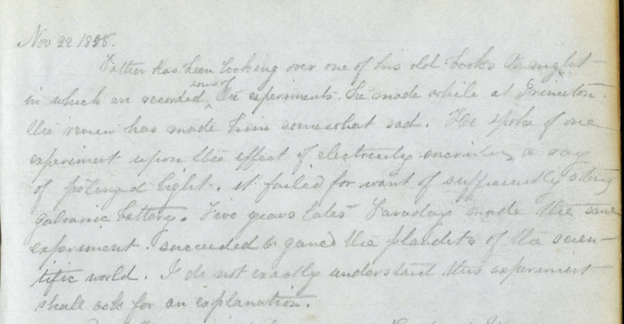 Nov 22 1858.
Father has been looking over one of his old books tonight
in which are recorded some of the experiments he made while at Princeton.
The review has made him somewhat sad. He spoke of one
experiment upon the effect of electricity on a ray
of polarized light. it failed for want of sufficiently strong
galvanic battery. Five years later Faraday made the same
experiment. succeeded & gained the plaudits of the scien-
tific world. I do not exactly understand this experiment
shall ask for an explanation.